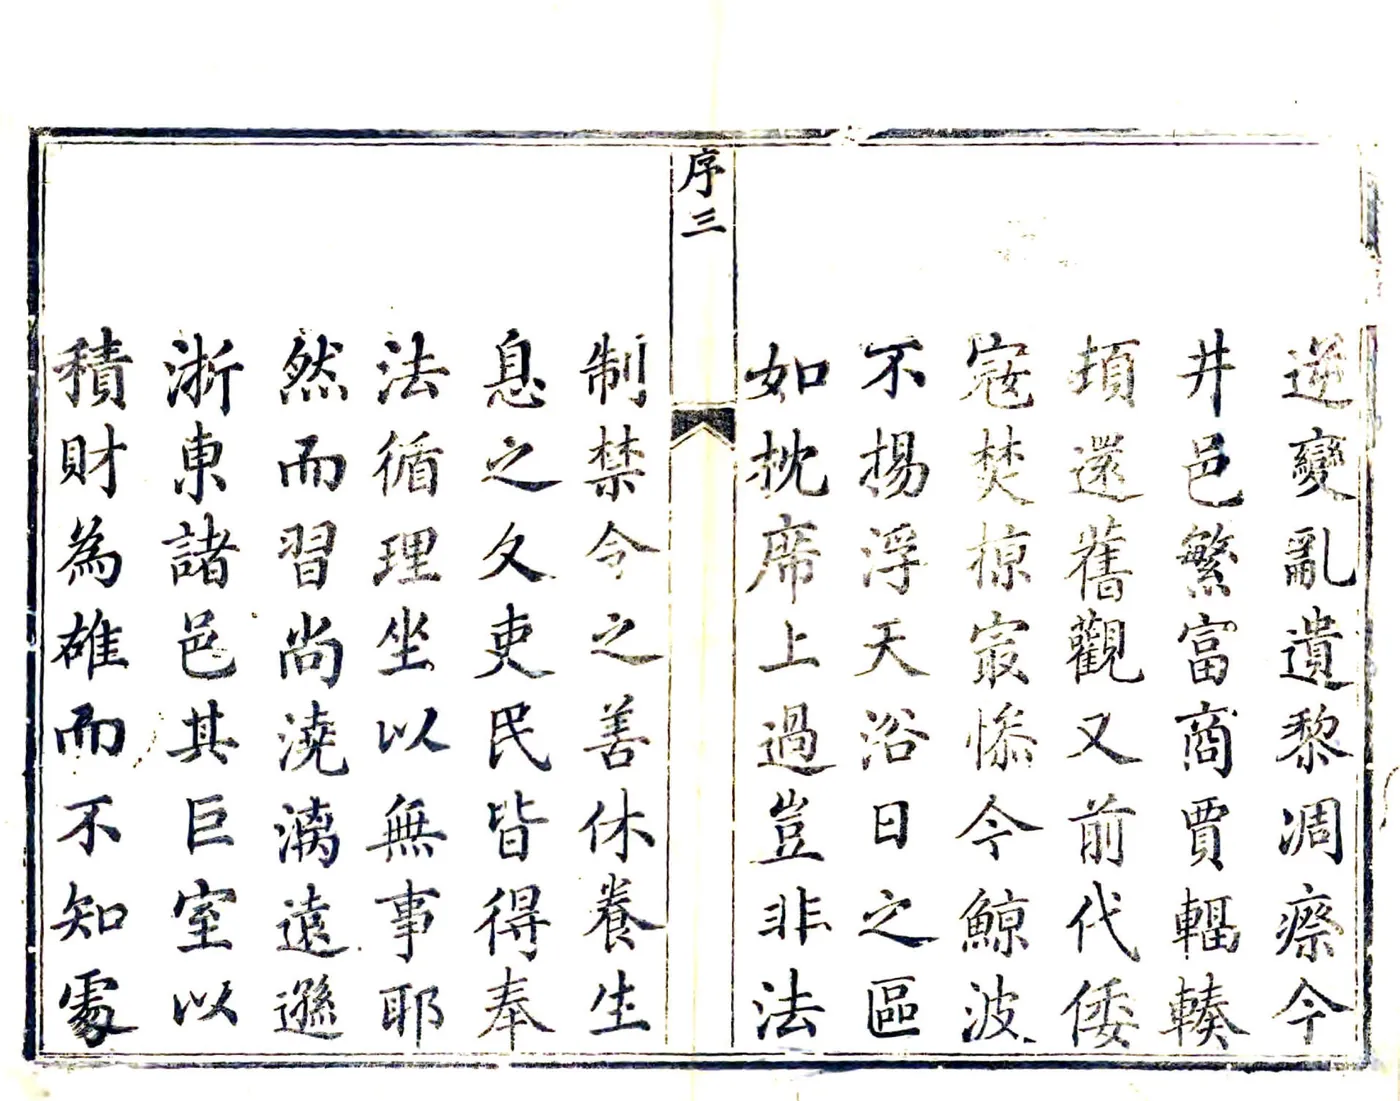 逆變亂遺黎凋瘵今
井邑繁富商賈輻輳
頓還舊觀又前代倭
寇焚掠寂慘今鯨波
不揚浮天浴日之區
如枕席上過豈非法
序三
制禁令之善休養生
息之久吏民皆得奉
法循理坐以無事耶
然而習尚澆漓遠遜
浙東諸邑其巨室以
積財為雄而不知處